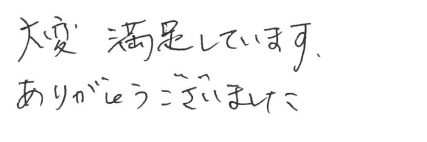 大変 満足しています.
ありがとうございました